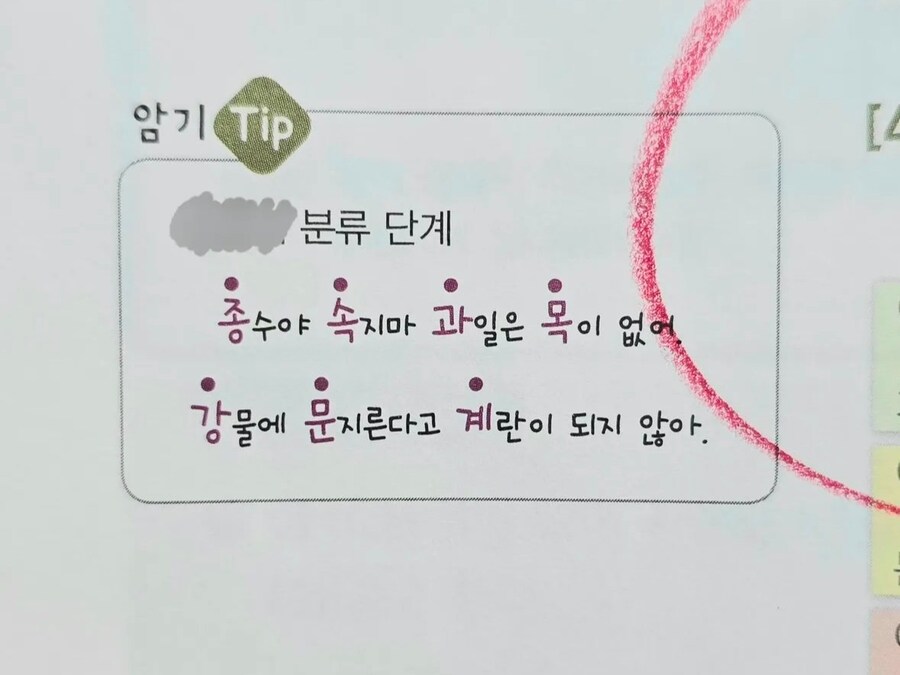 암기 Tip
분류 단계
종수야 속지마 과일은 목이 없어.
강물에 문지른다고 계란이 되지 않아.